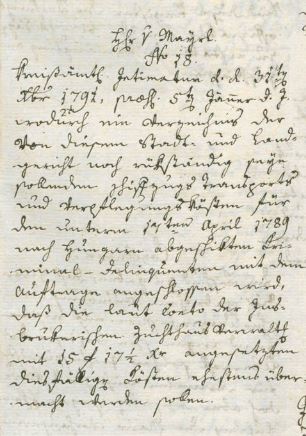 Hhr v Mayrl
No 18.
Kreißämtl. Intimatum d. d. 31ten
Xbr 1791, præs. 5ten Jänner d. J.
wodurch ein Verzeichnis der
von diesem Stadt- und Land-
gericht noch rükständig seyn
sollenden Transports
und Verpflegungs Kösten für
den unterm April 1789
nach Hungarn abgeschikten Cri-
minal-Delinquenten mit dem
Auftrage angeschlossen wird,
daß die laut Conto der Ins-
brukerischen Zuchthaus Verwalt
mit 15 f 17½ Xr angesetzten
diesfällige Kösten ehestens über-
macht werden sollen.